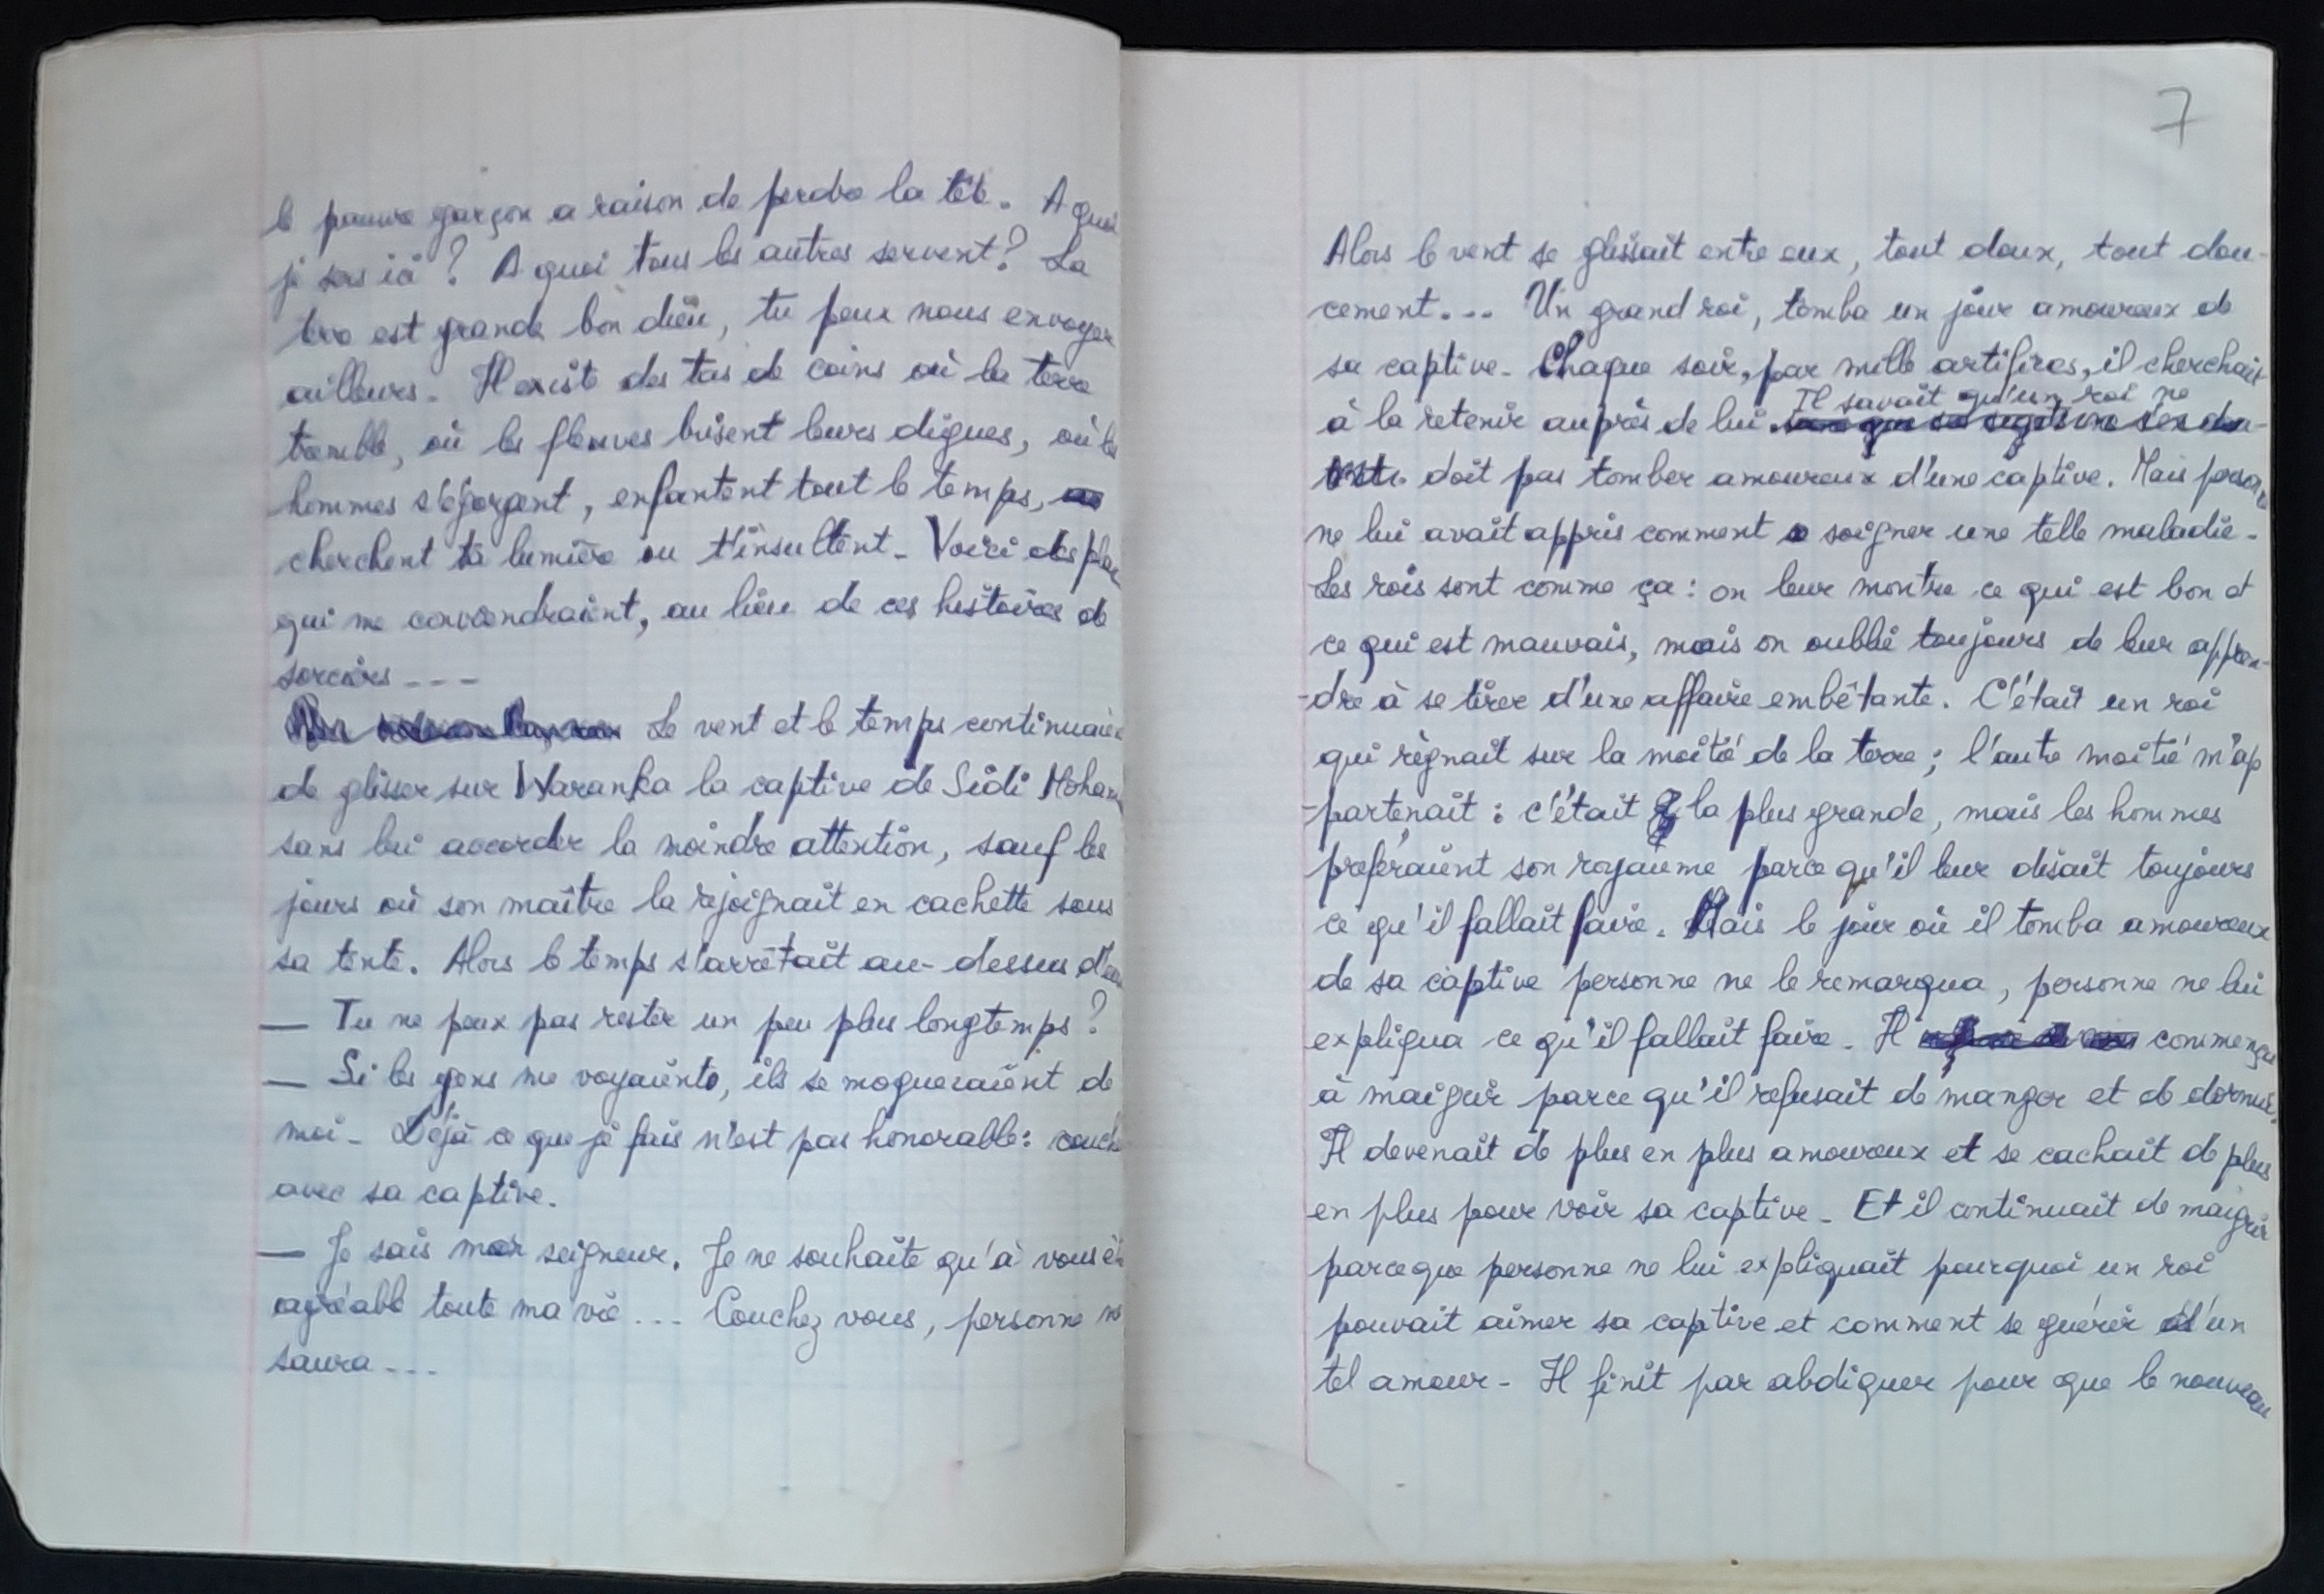 le pauvre garçon a raison de perdre la tête. A quoi
je sers ici ? A quoi tous les autres servent ? La
terre est grande bon dieu, tu peux nous envoyer
ailleurs. Il existe des tas de coins où la terre
tremble, où les fleuves brisent leurs digues, où les
hommes s'égorgent, enfantent tout le temps,
cherchent ta lumière ou t'insultent. Voici des
qui me conviendraient, au lieu de ces histoires de
sorciers ...
Le vent et le temps continuaient
de glisser sur Waranka la captive de Sidi Moham
sans lui accorder la moindre attention, sauf les
jours où son maître la rejoignait en cachette sous
sa tente. Alors le temps s'arrêtait au-dessus d'eux
— Tu ne peux pas rester un peu plus longtemps ?
— Si les gens me voyaient, ils se moqueraient de
moi. Déjà ce que je fais n'est pas honorable : couche
avec sa captive.
— Je sais mon seigneur. Je ne souhaite qu'à vous ê
agréable toute ma vie ... Couchez vous, personne ne
saura ...
7
Alors le vent se glissait entre eux, tout doux, tout dou-
cement ... Un grand roi, tomba un jour amoureux de
sa captive. Chaque soir, par mille artifices, il cherchait
à la retenir auprès de lui. Il savait qu'un roi ne
doit pas tomber amoureux d'une captive. Mais person
ne lui avait appris comment soigner une telle maladie.
Les rois sont comme ça : on leur montre ce qui est bon et
ce qui est mauvais, mais on oublie toujours de leur appren-
-dre à se tirer d'une affaire embêtante. C'était un roi
qui règnait sur la moitié de la terre ; l'autre moitié m'ap
-partenait : c'était la plus grande, mais les hommes
preféraient son royaume parce qu'il leur disait toujours
ce qu'il fallait faire. Mais le jour où il tomba amoureux
de sa captive personne ne le remarqua, personne ne lui
expliqua ce qu'il fallait faire. Il commença
à maigrir parce qu'il refusait de manger et de dormir.
Il devenait de plus en plus amoureux et se cachait de plus
en plus pour voir sa captive. Et il continuait de maigrir
parceque personne ne lui expliquait pourquoi un roi
pouvait aimer sa captive et comment se guérir d'un
tel amour. Il finit par abdiquer pour que le nouveau